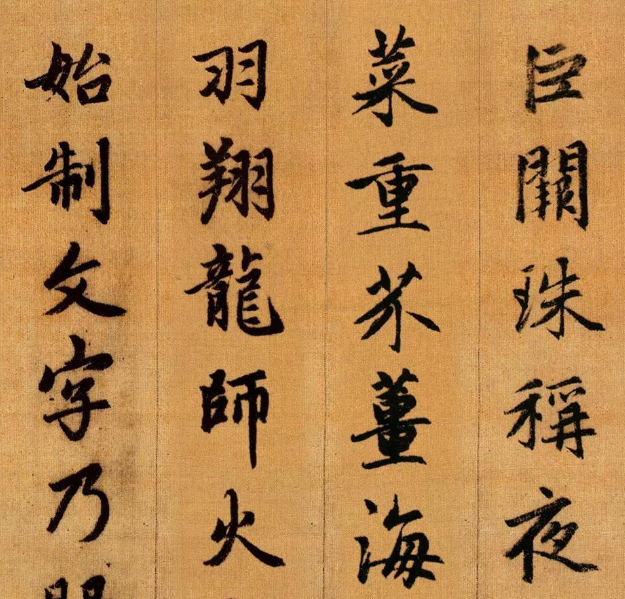 巨闕珠稱夜
菜重芥薑海
羽翔龍師火
始制文字乃